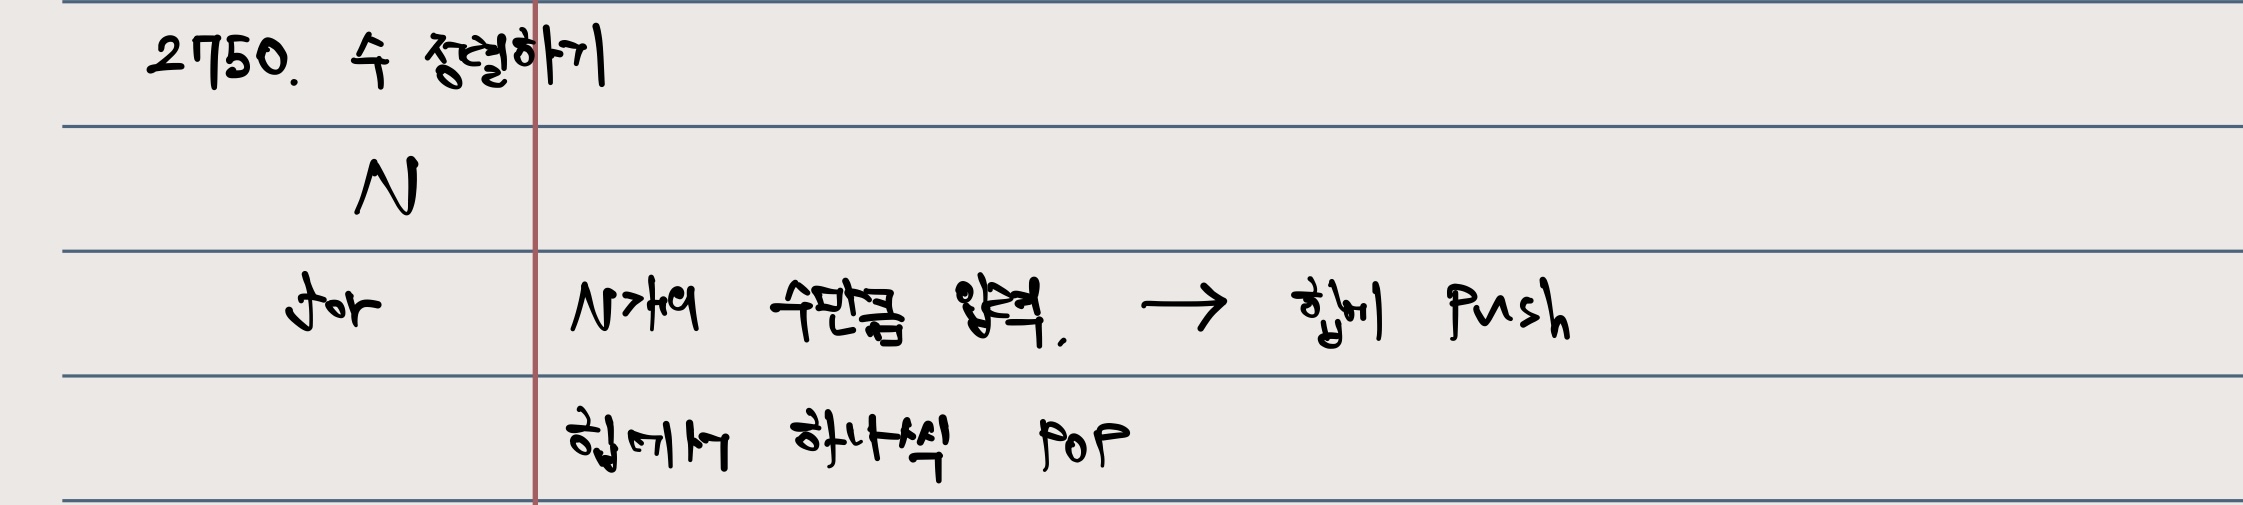 2750. 수 정렬하기
N
for N개의 수만큼 입력. → 힙에 push
힙에서 하나씩 pop